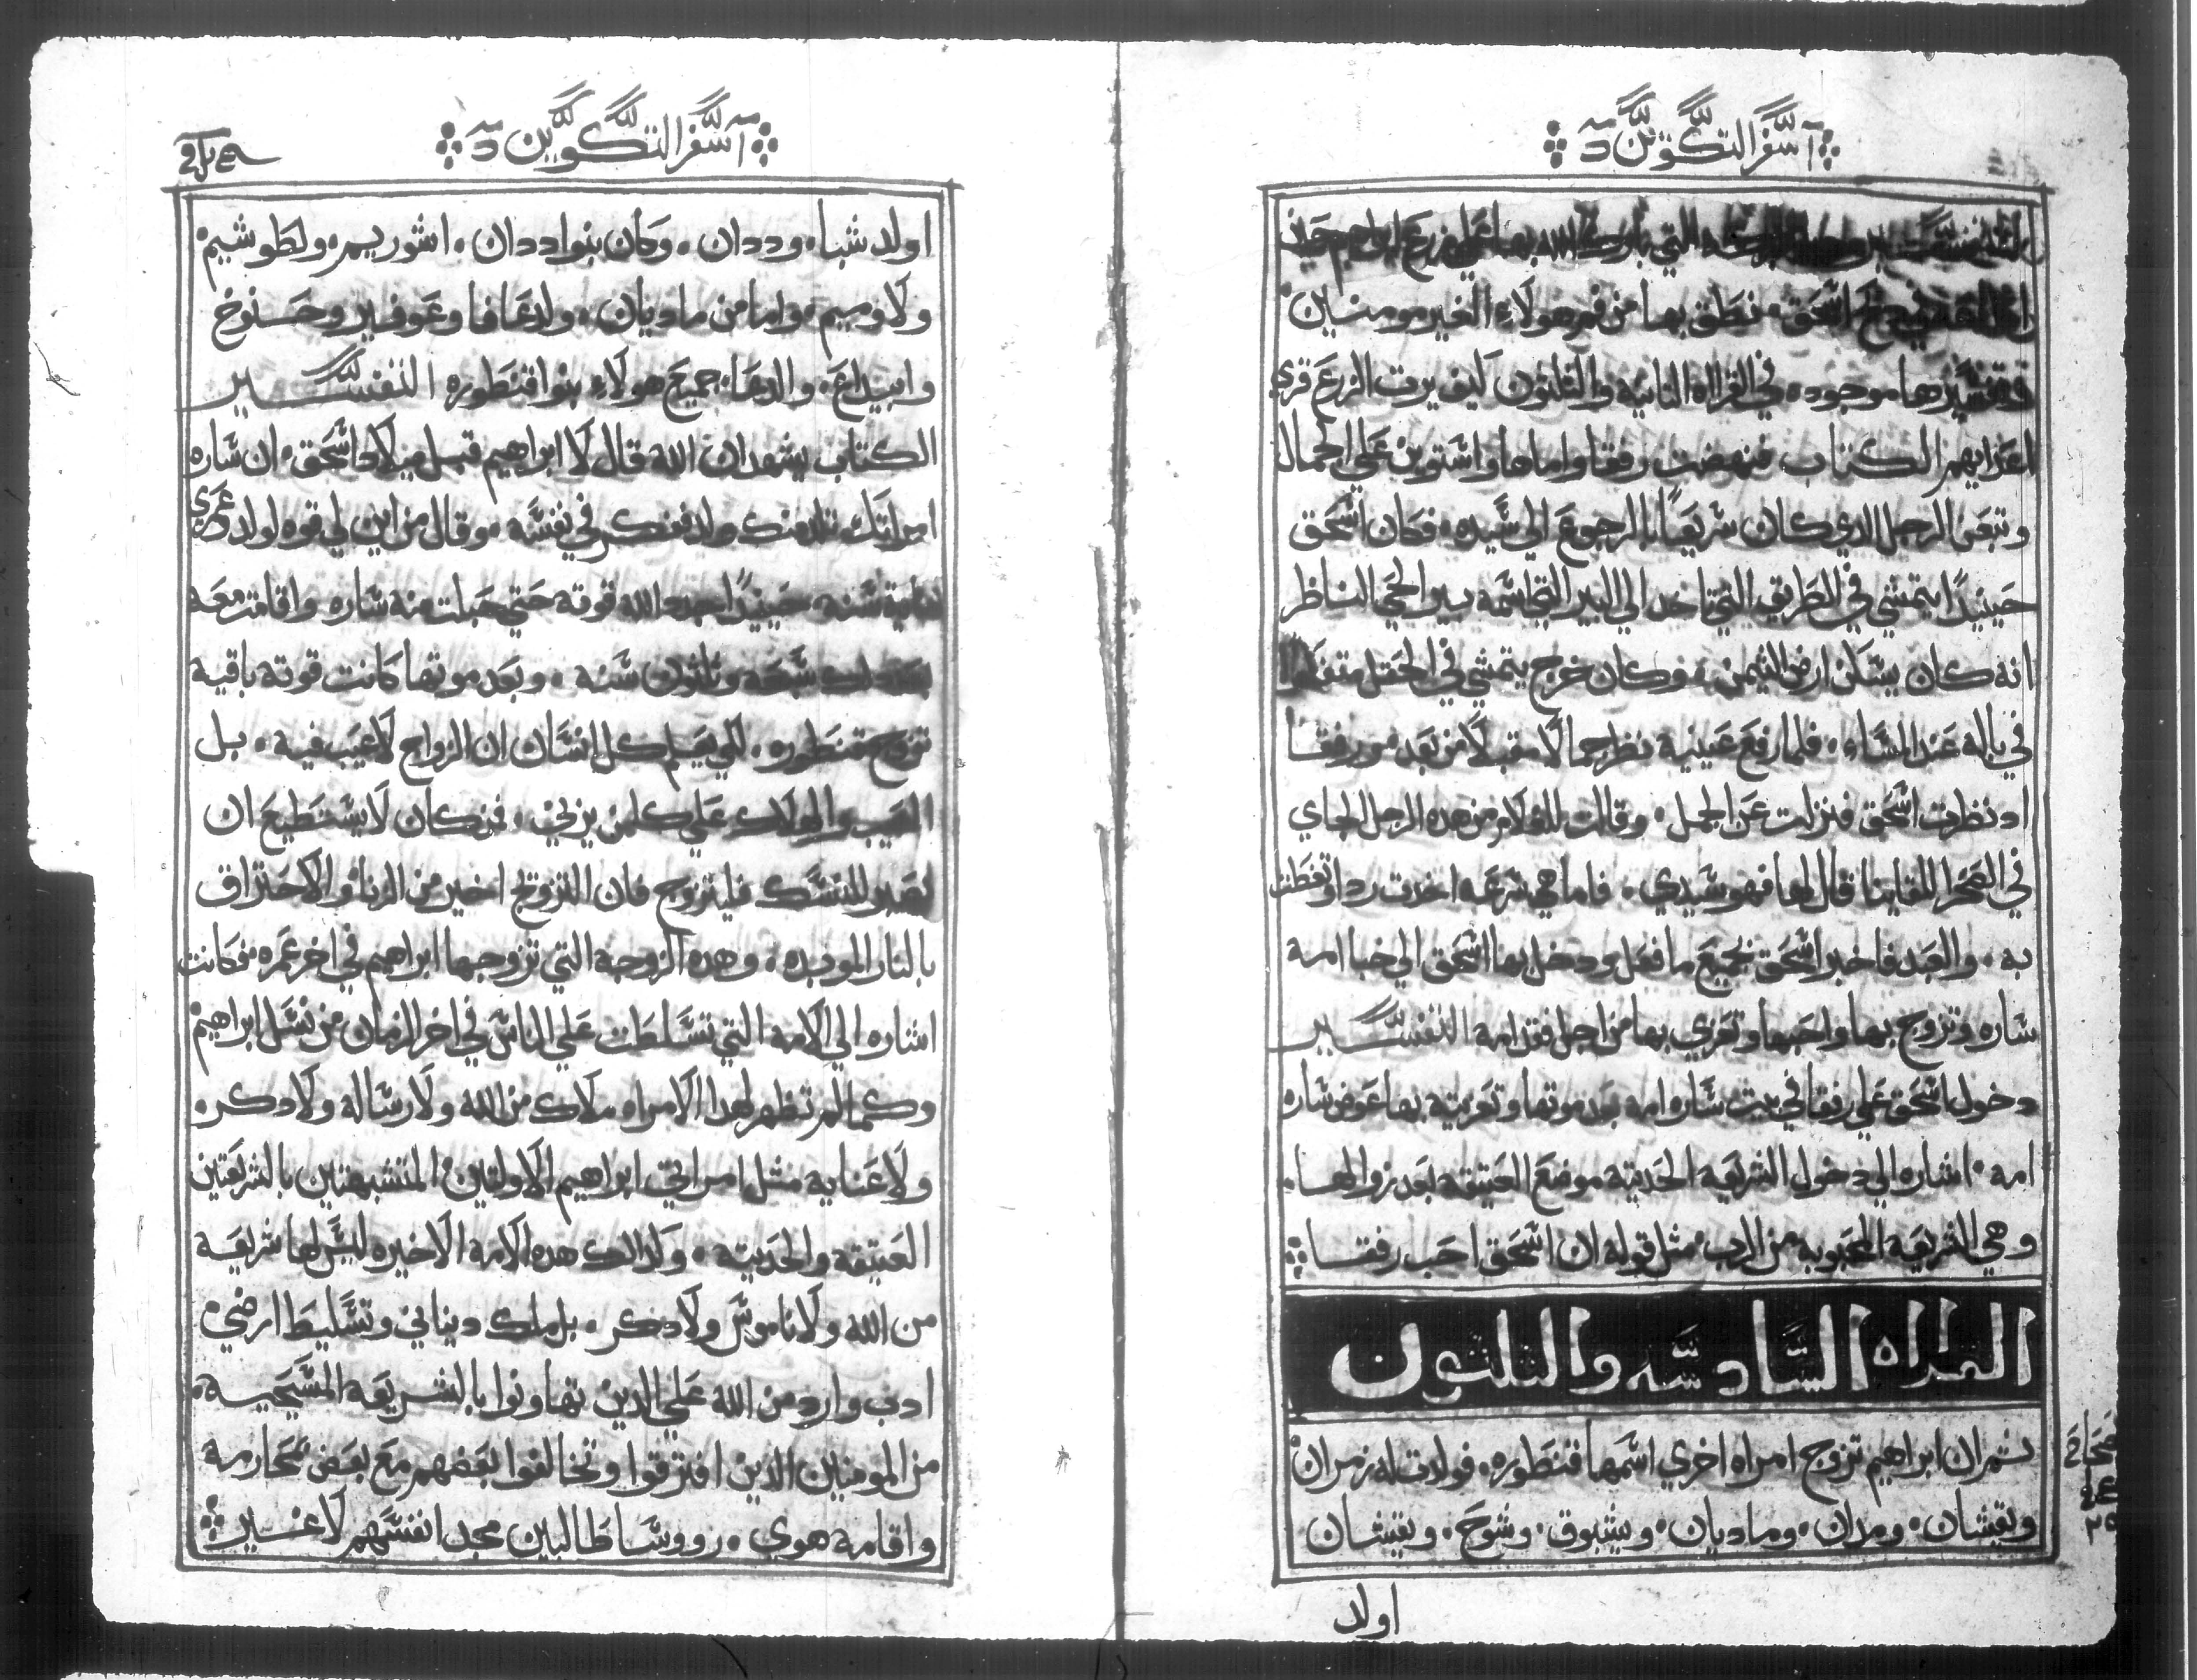 سفر التكوين
التفسير البركه التي بارك الله بها علي زرع ابراهيم حين
اسحق نطق بها من فم هولاء الغير مومنين
وتفسيرها موجوده في القراه التانيه والتلتون كيف يرت الزرع قري
اعدايهم الكتاب فنهضت رفقا واماها واستوين علي الجمال
وتبعن الرجل الدي كان سريعًا بالرجوع الي سيده فكان اسحق
حينيدًا يتمشي في الطريق التي تاخد الي البير التي اسمه بير الحي الناظر
انه كان يسكن ارض التيمن وكان خرج يتمشي في الحقل متفكرا
في باله عند المساء فلما رفع عينيه نظر جمالًا مقبلًا من بعد ورفقا
اد نظرت اسحق فنزلت عن الجمل وقالت للغلام من هده الرجل الجاي
في الصحرا للقاينا قال لها فهو سيدي فاما هي سرعه اخدت ردا وتغطت
به والعبد فاخبر اسحق بجميع ما فعل ودخل بها اسحق الي خبا امه
ساره وتزوج بها واحبها وتعزي بها من اجل فقد امه التفسير
دخول اسحق علي رفقا في بيت ساره امه بعد موتها وتعزيته بها عوض ساره
امه اشاره الي دخول الشريعه الحديته موضع العتيقه بعد زوالها
وهي الشريعه المحبوبه من الرب مثل قوله ان اسحق احب رفقا
القراه السادسه والتلتون
تم ان ابراهيم تزوج امراه اخري اسمها قنطوره فولدت له زمران
ويقشان ومدان وماديان ويشبوق وشوح ويقشان
اصحاح
٢٥
اولد
سفر التكوين
اولد شبا وددان وكان بنوا ددان اشوريم ولطوشيم
ولاوميم واما من ماديان ولد عافا وعوفير وحنوخ
وابيداع والدعا جميع هولاء بنوا قنطوره التفسير
الكتاب يشهد ان الله قال لابراهيم قبل ميلاد اسحق ان ساره
امراتك تلد منك ولد ففكر في نفسه وقال من اين لي قوه اولد وعمري
لماية سنه حينيدًا جدد الله قوته حتي حبلت منه ساره واقامت معه
بعد دلك سبعه وتلتون سنه وبعد موتها كانت قوته باقيه
تزوج قنطوره لكي يعلم كل انسان ان الزواج لا عيب فيه بل
العيب والهلاك علي كلمن يزني فمن كان لا يستطيع ان
يصبر للنسك فليتزوج فان التزوج اخير من الزنا والاحتراق
بالنار الموبده وهده الزوجه التي تزوجها ابراهيم في اخر عمره فكانت
اشاره الي الامه التي تسلطت علي الناس في اخر الزمان من نسل ابراهيم
وكما لم تظهر لهدا الامراه ملاك من الله ولا رساله ولا دكر
ولا عنايه مثل امراتي ابراهيم الاولتين المتشبهتين بالشريعتين
العتيقه والحديته ولدلك هده الامه الاخيره ليس لها شريعه
من الله ولا ناموس ولا دكر بل ملك دنياني وتسليط ارضي
ادب وارد من الله علي الدين تهاونوا بالشريعه المسيحيه
من المومنين الدين افترقوا وتخالفوا بعضهم مع بعض محارمه
واقامه هوي رووسا طالبين مجد انفسهم لا غير